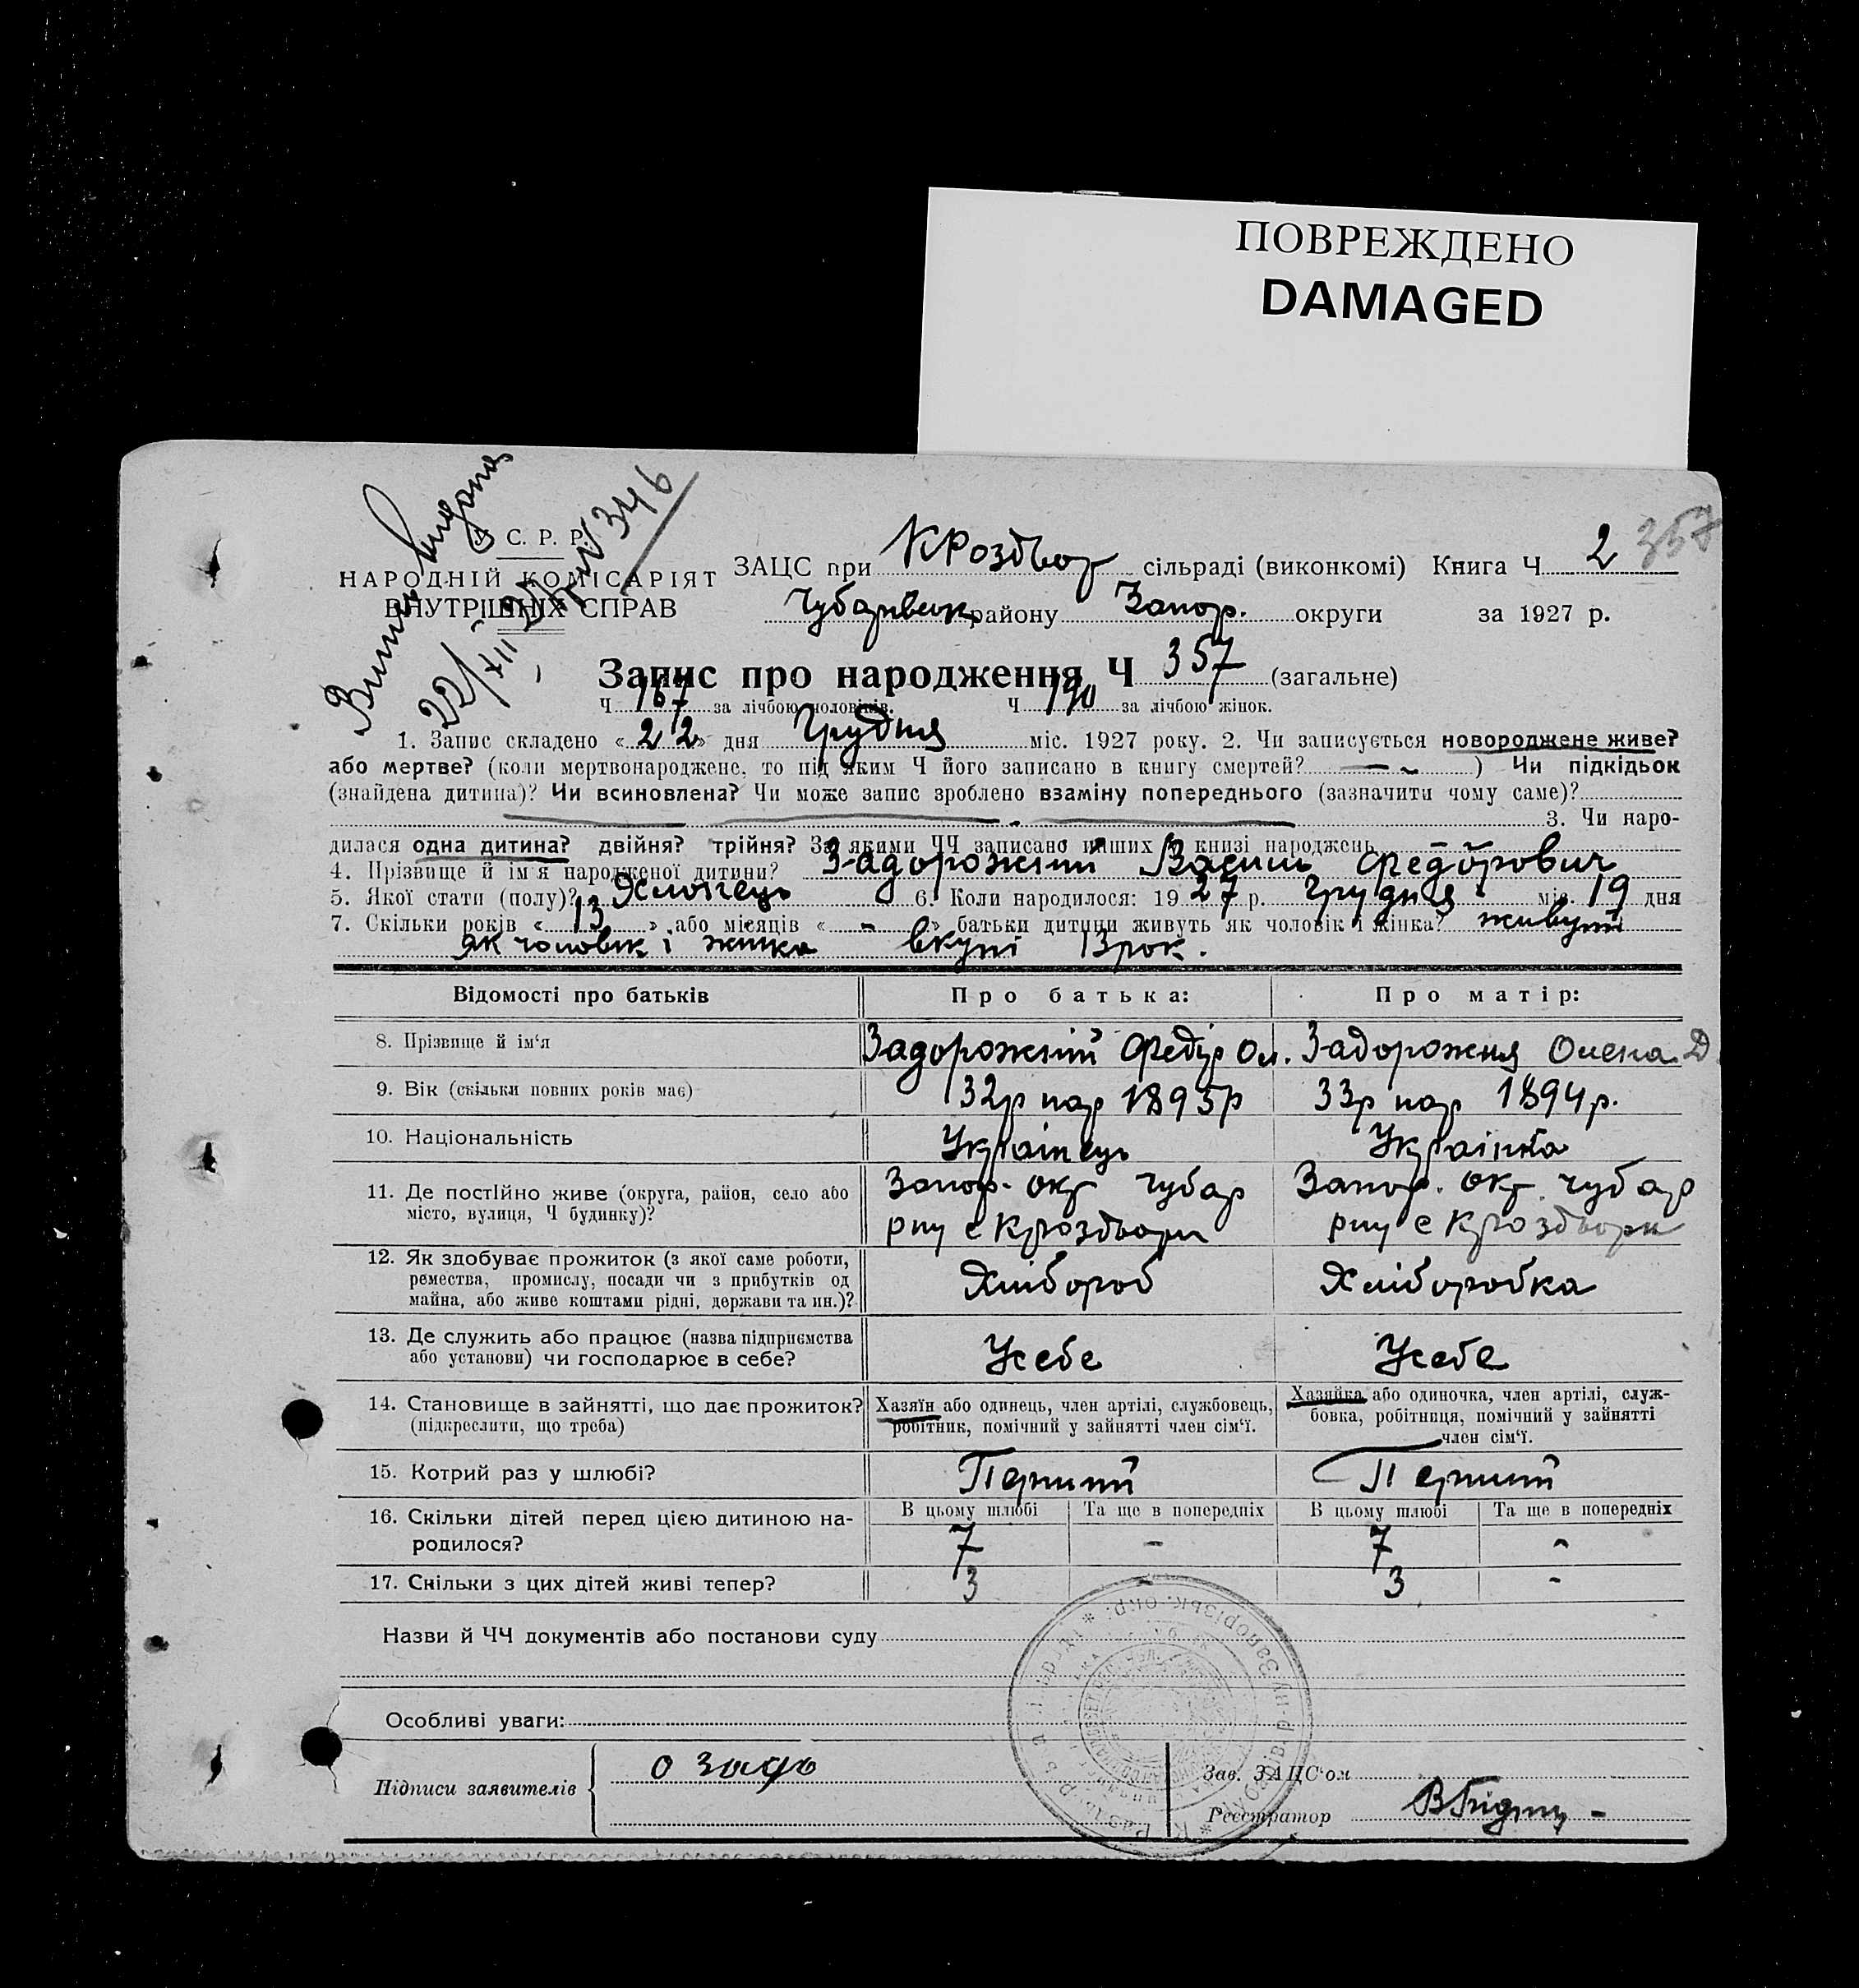 ПОВРЕЖДЕНО
DAMAGED
357
Витяг видана
22/XII 27р № 346
У. С. Р. Р.
НАРОДНІЙ КОМІСАРІЯТ
ВНУТРІШНІХ СПРАВ
ЗАЦС при КРоздвор сільраді (виконкомі) Книга Ч 2
Чубарівськ району Запор. округи за 1927 р.
Запис про народження Ч 357 (загальне)
Ч 167 за лічбою чоловіків. Ч 190 за лічбою жінок.
1. Запис складено «22» дня Грудня міс. 1927 року. 2. Чи записується новороджене живе?
або мертве? (коли мертвонароджене, то під яким Ч його записано в книгу смертей? — ) Чи підкідьок
(знайдена дитина)? Чи всиновлена? Чи може запис зроблено взаміну попереднього (зазначити чому саме)?
3. Чи наро-
дилася одна дитина? двійня? трійня? За якими ЧЧ записано инших в книзі народжень
4. Прізвище й ім'я народженої дитини? Задорожний Василь Федорович
5. Якої стати (полу)? Хлопець 6. Коли народилося: 1927 р. Грудня міс. 19 дня
7. Скільки років «13» або місяців «-» батьки дитини живуть як чоловік і жінка? живуть
як чоловік і жинка вкупі 13 рок.
Відомості про батьків Про батька: Про матір:
8. Прізвище й ім'я Задорожний Федір Ол. Задорожня Олена Д
9. Вік (скільки повних років має) 32р нар 1895р 33р нар 1894р.
10. Національність Українець Українка
11. Де постійно живе (округа, район, село або Запор. окр Чубар Запор. окр. Чубар
місто, вулиця, Ч будинку)? рну с Кроздвори рну с Кроздвори
12. Як здобуває прожиток (з якої саме роботи,
ремества, промислу, посади чи з прибутків од Хлібороб Хліборобка
майна, або живе коштами рідні, держави та ин.)?
13. Де служить або працює (назва підприємства
або установи) чи господарює в себе? Усебе Усебе
14. Становище в зайнятті, що дає прожиток? Хазяїн або одинець, член артілі, службовець, Хазяйка або одиночка, член артілі, служ-
(підкреслити, що треба) робітник, помічний у зайнятті член сім'ї. бовка, робітниця, помічний у зайнятті
член сім'ї.
15. Котрий раз у шлюбі? Перший Перший
16. Скільки дітей перед цією дитиною на- В цьому шлюбі Та ще в попередніх В цьому шлюбі Та ще в попередніх
родилося? 7 - 7 -
17. Скільки з цих дітей живі тепер? 3 - 3 -
Назви й ЧЧ документів або постанови суду
Особливі уваги:
Підписи заявителів о задо
Зав. ЗАЦС'ом
Реєстратор